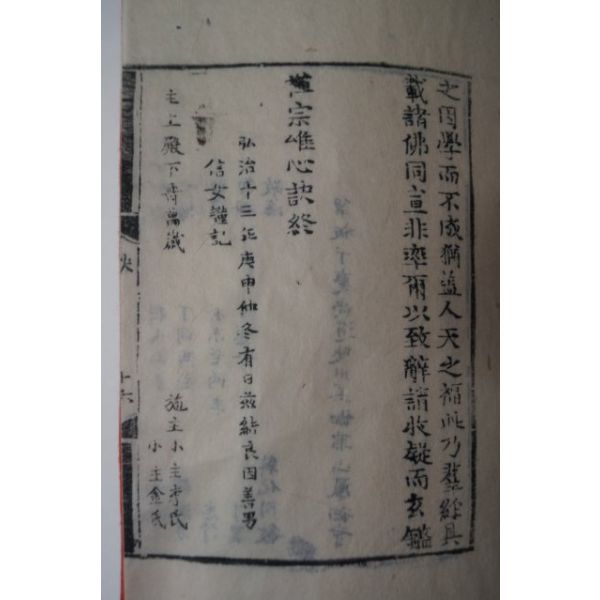 之因學而不成猶益人天之福此乃群經具
載諸佛同宣非率爾以致辭請收疑而玄鑑
禪宗唯心訣終
弘治十三年庚申仲冬有日玆結良因善男
信女謹記
主上殿下壽萬歲
施主小主李氏
小主金氏
訣 十六